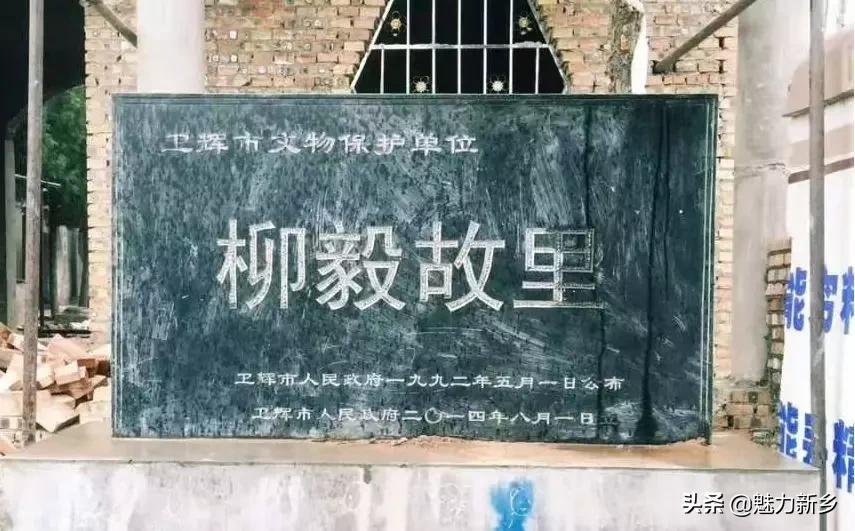 卫辉市文物保护单位
柳毅故里
卫辉市人民政府一九九二年五月一日公布
卫辉市人民政府二〇一四年八月一日立
能
精
能
精
头条 @魅力新乡